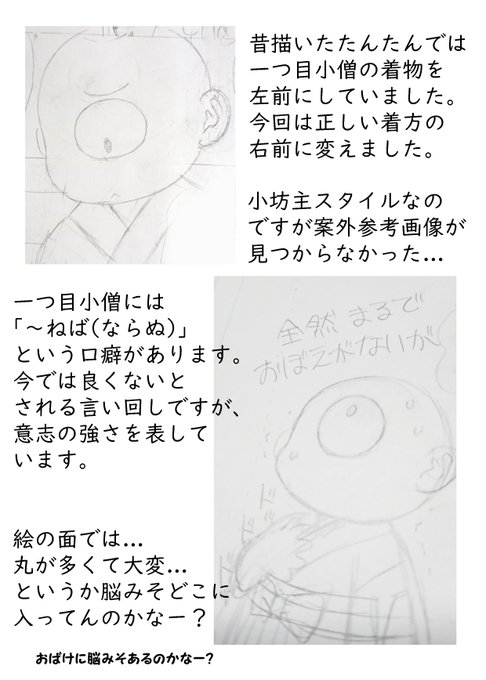 昔描いたたんたんでは
一つ目小僧の着物を
左前にしていました。
今回は正しい着方の
右前に変えました。
小坊主スタイルなの
ですが案外参考画像が
見つからなかった…
一つ目小僧には
「～ねば(ならぬ)」
という口癖があります。
今では良くないと
される言い回しですが、
意志の強さを表して
います。
全然まるで
おぼえがないが
ドドド
絵の面では…
丸が多くて大変…
というか脳みそどこに
入ってんのかなー？
おばけに脳みそあるのかなー?